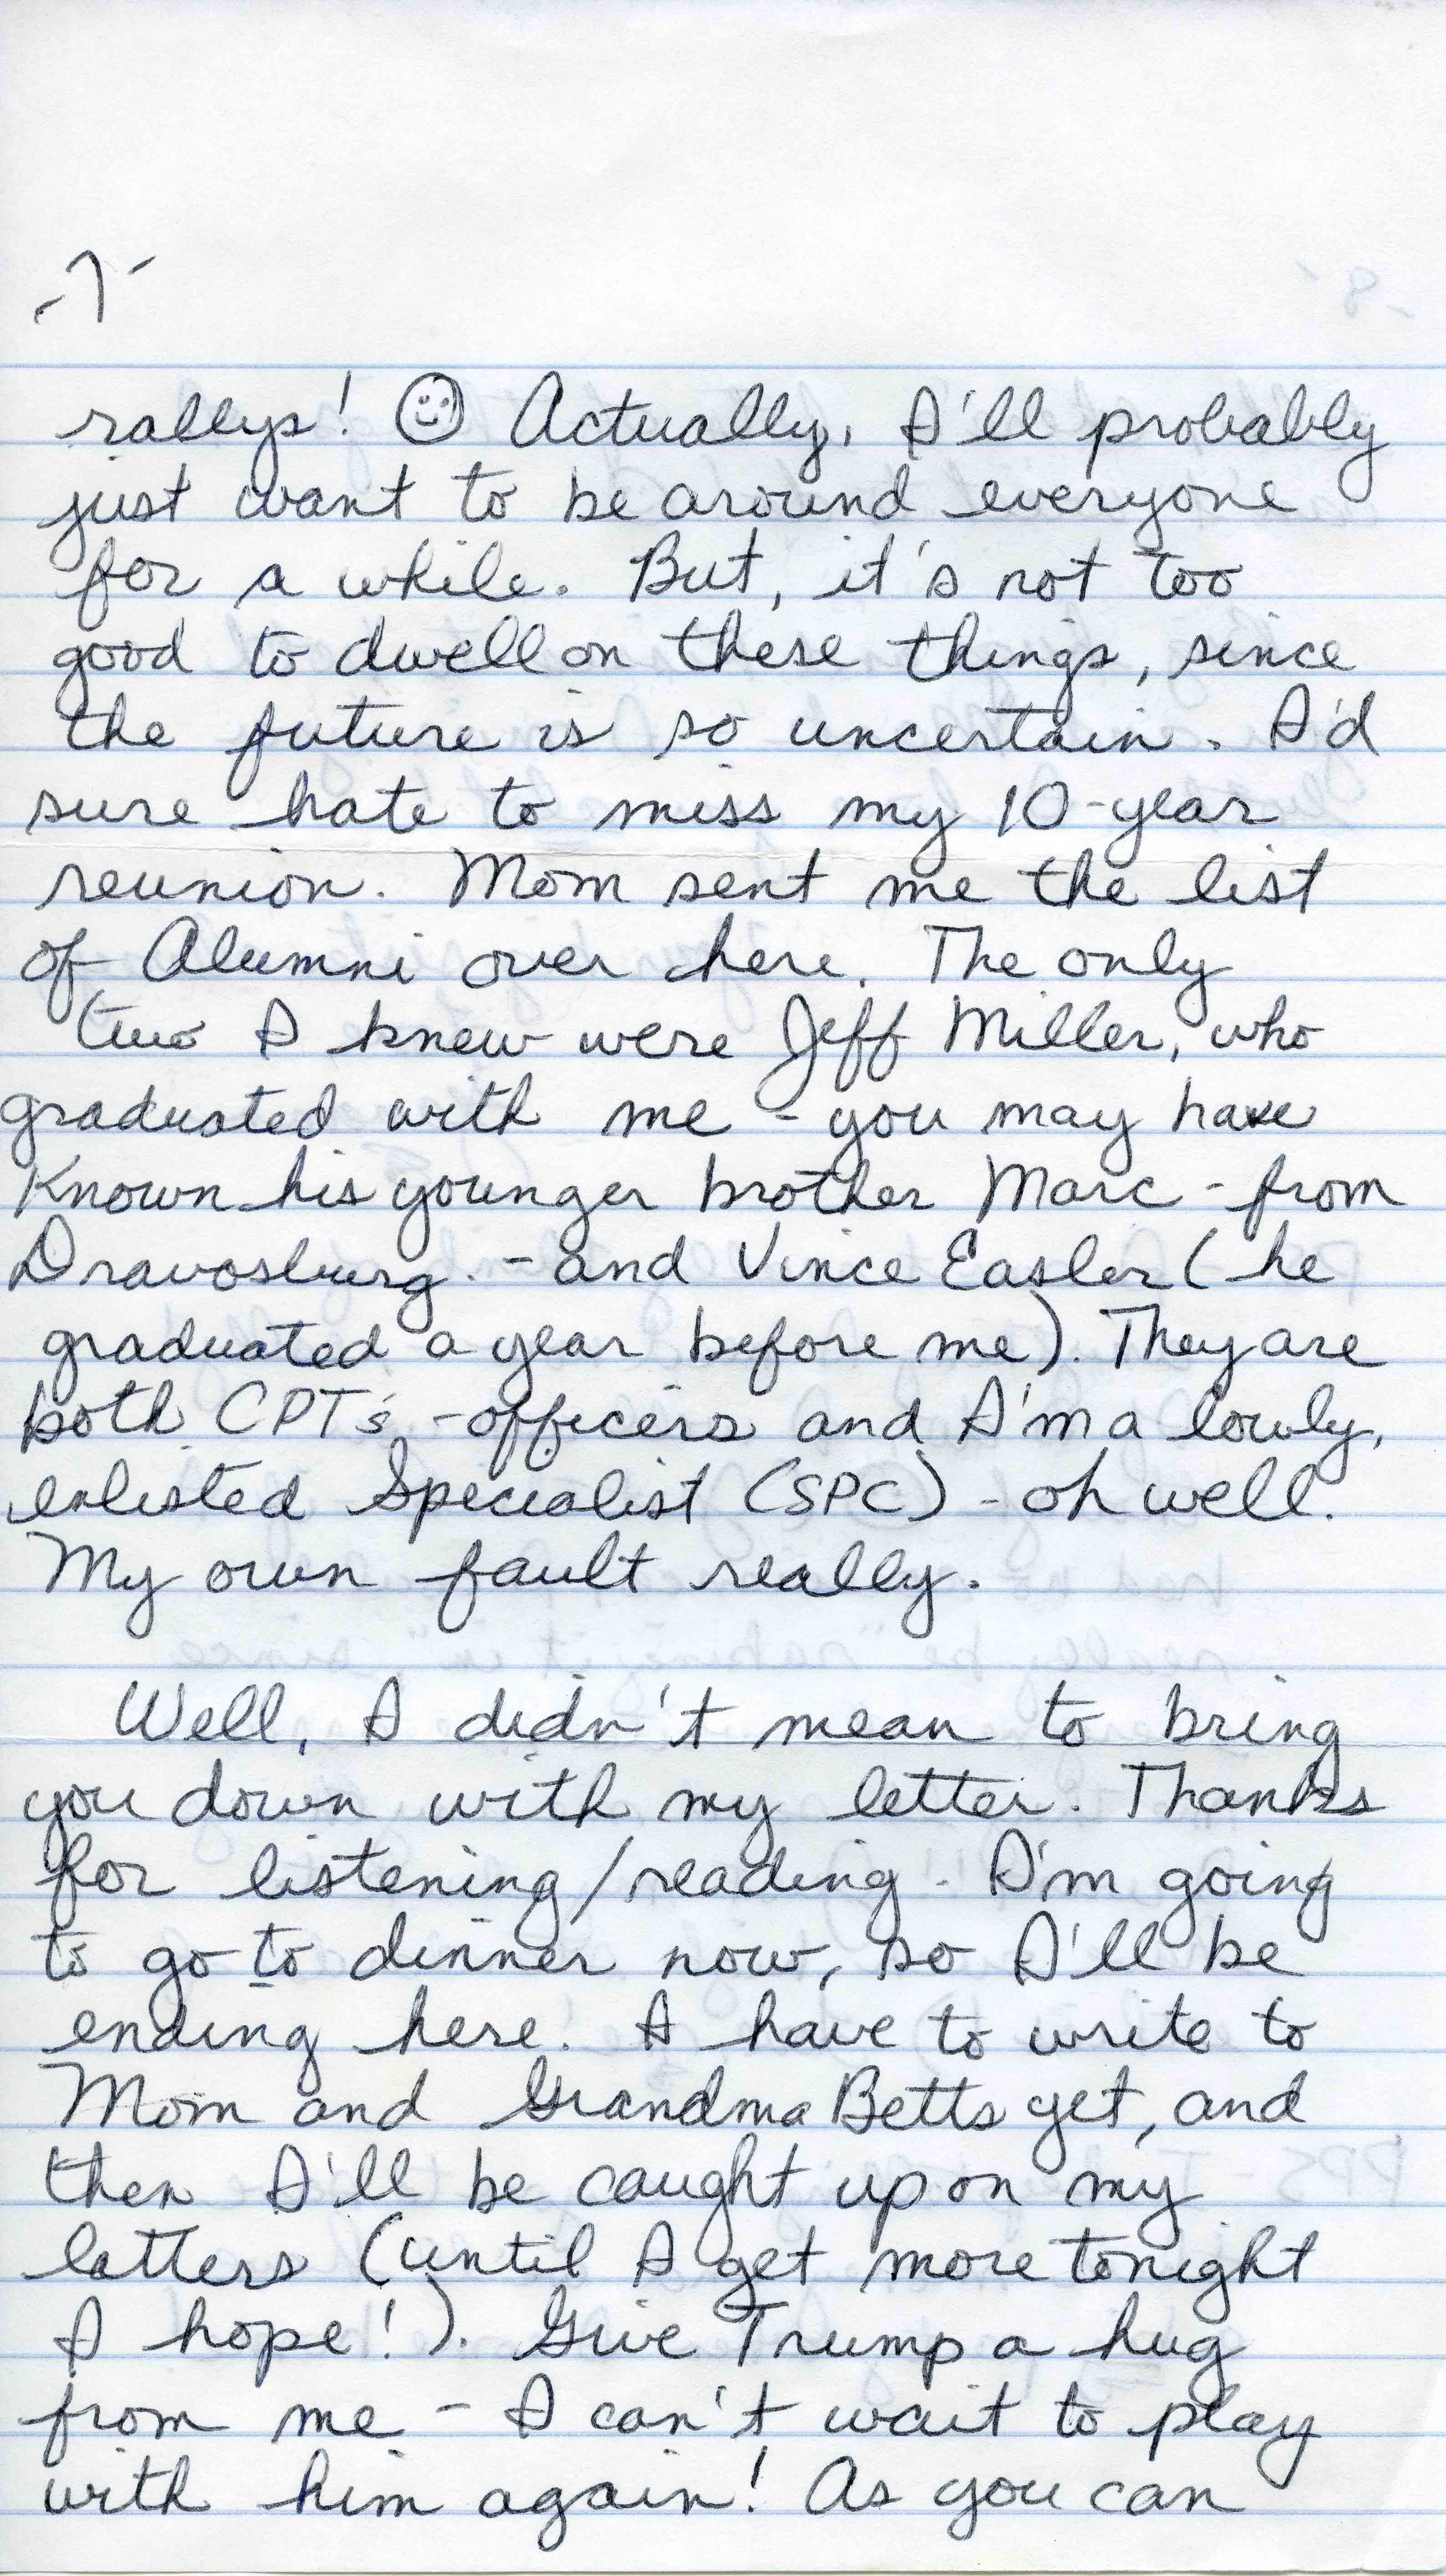 -7-
rallys! ☺ Actually, I'll probably
just want to be around everyone
for a while. But, it's not too
good to dwell on these things, since
the future is so uncertain. I'd
sure hate to miss my 10-year
reunion. Mom sent me the list
of Alumni over here. The only
two I knew were Jeff Miller, who
graduated with me - you may have
known his younger brother Marc - from
Dravosburg. - and Vince Easler (he
graduated a year before me). They are
both CPT's - officers and I'm a lowly,
enlisted Specialist (SPC) - oh well.
My own fault really.
Well, I didn't mean to bring
you down with my letter. Thanks
for listening/reading. I'm going
to go to dinner now, so I'll be
ending here. I have to write to
Mom and Grandma Betts yet, and
then I'll be caught up on my
letters (until I get more tonight
I hope!). Give Trump a hug
from me - I can't wait to play
with him again! As you can